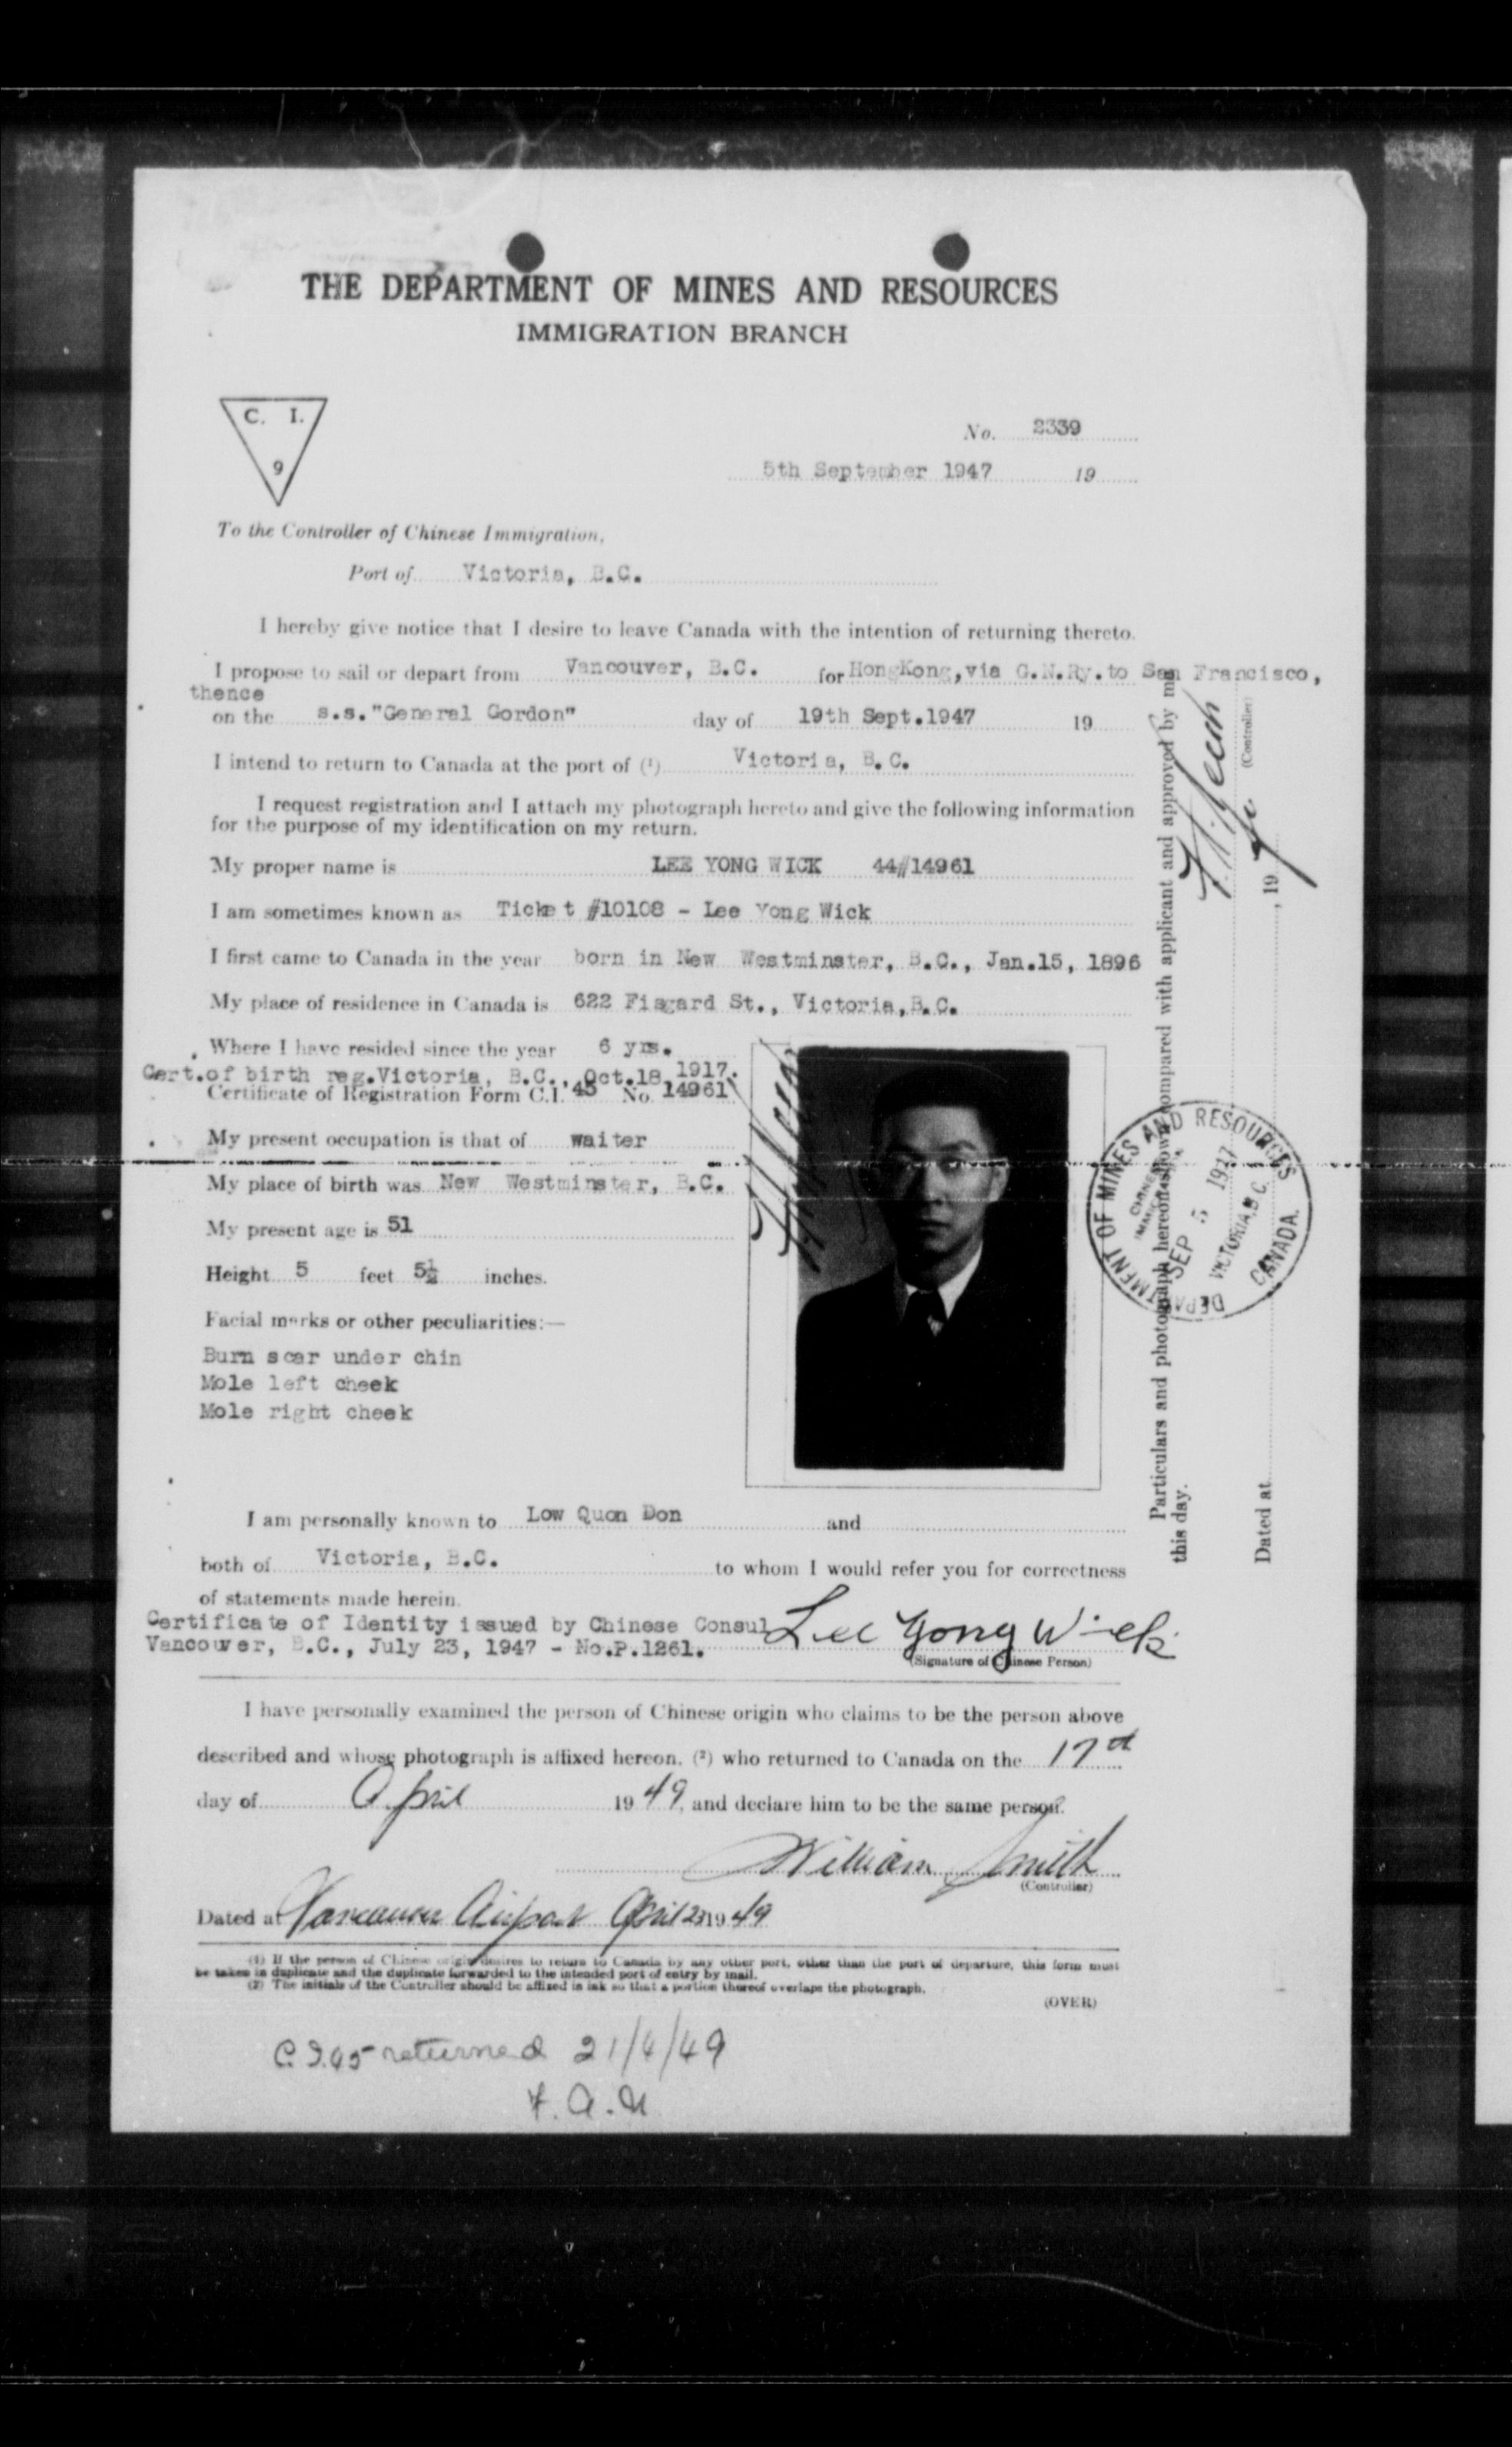 THE DEPARTMENT OF MINES AND RESOURCES
IMMIGRATION BRANCH
C. I.
9
No. 2339
5th September 1947 19
To the Controller of Chinese Immigration,
Port of Victoria, B.C.
I hereby give notice that I desire to leave Canada with the intention of returning thereto.
I propose to sail or depart from Vancouver, B.C. for HongKong, via G.N.Ry. to San Francisco,
thence
on the s.s."General Gordon" day of 19th Sept.1947 19
I intend to return to Canada at the port of (¹) Victoria, B.C.
I request registration and I attach my photograph hereto and give the following information
for the purpose of my identification on my return.
My proper name is LEE YONG WICK 44#14961
I am sometimes known as Ticket #10108 - Lee Yong Wick
I first came to Canada in the year born in New Westminster, B.C., Jan.15, 1896
My place of residence in Canada is 622 Fisgard St., Victoria,B.C.
Where I have resided since the year 6 yrs.
Cert.of birth reg.Victoria, B.C., Oct.18, 1917.
Certificate of Registration Form C.I. 45 No. 14961
My present occupation is that of waiter
My place of birth was New Westminster, B.C.
My present age is 51
Height 5 feet 5½ inches.
Facial marks or other peculiarities:—
Burn scar under chin
Mole left cheek
Mole right cheek
Particulars and photograph hereon shown compared with applicant and approved by me
this day.
(Controller)
Dated at , 19
DEPARTMENT OF MINES AND RESOURCES
CHINESE
IMMIGRATION
SEP 5 1947
VICTORIA, B.C.
CANADA.
I am personally known to Low Quon Don and
both of Victoria, B.C. to whom I would refer you for correctness
of statements made herein.
Certificate of Identity issued by Chinese Consul
Vancouver, B.C., July 23, 1947 - No.P.1261.
Lee Yong Wick
(Signature of Chinese Person)
I have personally examined the person of Chinese origin who claims to be the person above
described and whose photograph is affixed hereon, (²) who returned to Canada on the 17th
day of April 1949, and declare him to be the same person.
William Smith
(Controller)
Dated at Vancouver Airport April 23 1949
(1) If the person of Chinese origin desires to return to Canada by any other port, other than the port of departure, this form must
be taken in duplicate and the duplicate forwarded to the intended port of entry by mail.
(2) The initials of the Controller should be affixed in ink so that a portion thereof overlaps the photograph.
(OVER)
C.I.45 returned 21/4/49